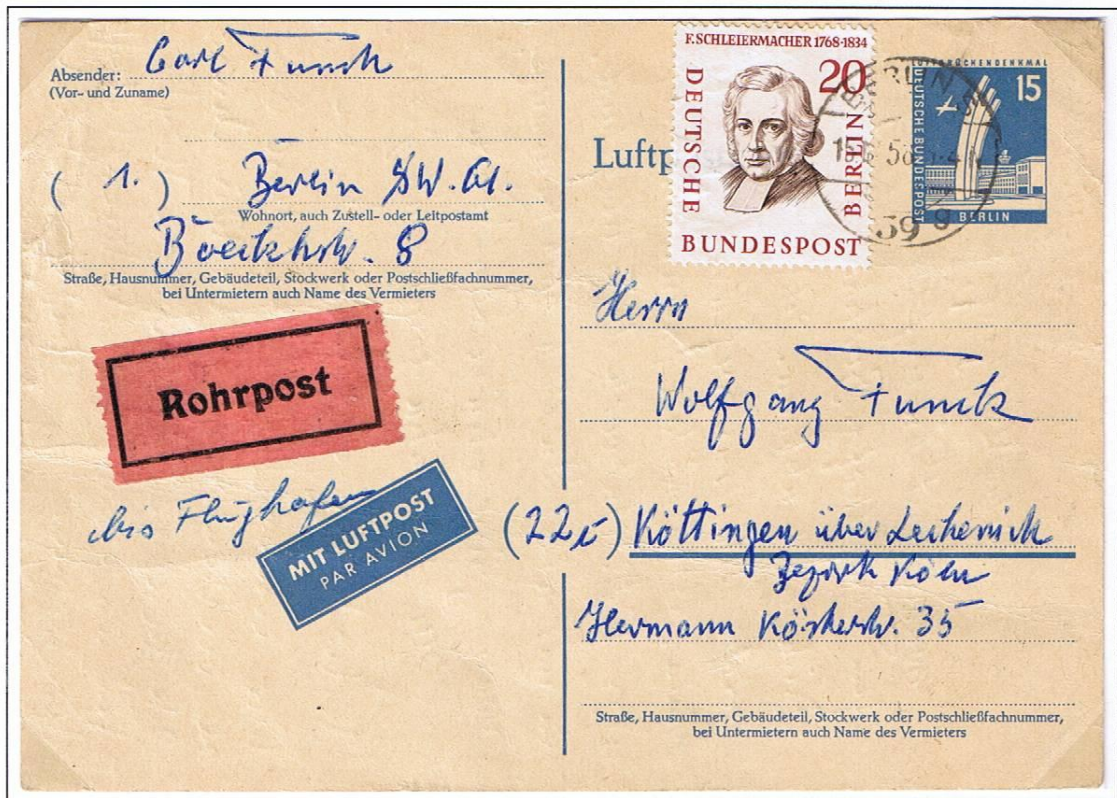 Absender: Carl Funck
(Vor- und Zuname)
(1.) Berlin SW. 61.
Wohnort, auch Zustell- oder Leitpostamt
Boeckhstr. 8
Straße, Hausnummer, Gebäudeteil, Stockwerk oder Postschließfachnummer,
bei Untermietern auch Name des Vermieters
Rohrpost
bis Flughafen
MIT LUFTPOST
PAR AVION
F. SCHLEIERMACHER 1768-1834
20
DEUTSCHE
BERLIN
BUNDESPOST
BERLIN
LUFTBRÜCKENDENKMAL
15
DEUTSCHE BUNDESPOST
BERLIN
Herrn
Wolfgang Funck
(22c) Köttingen über Lechenich
Bezirk Köln
Hermann Kösterstr. 35
Straße, Hausnummer, Gebäudeteil, Stockwerk oder Postschließfachnummer,
bei Untermietern auch Name des Vermieters